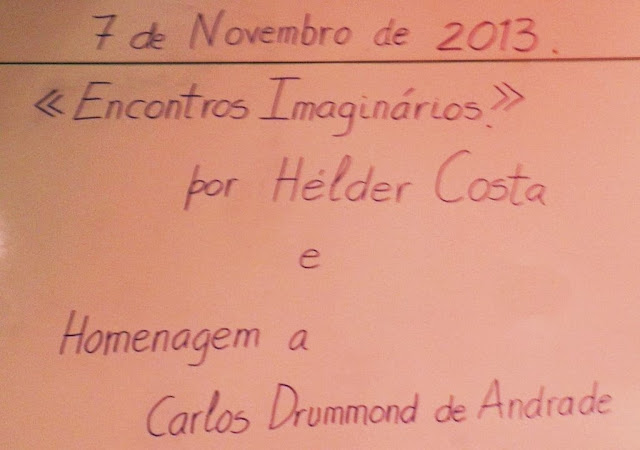 7 de Novembro de 2013.
«Encontros Imaginários.»
por Hélder Costa
e
Homenagem a
Carlos Drummond de Andrade